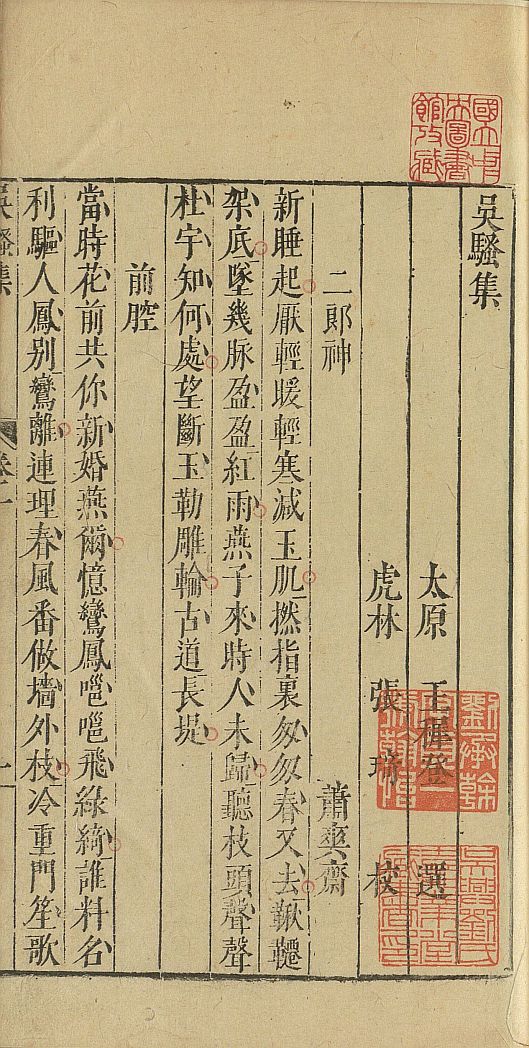 吳騷集
太原 王穉登 選
虎林 張琦 校
二郎神 蕭爽齋
新睡起厭輕暖輕寒減玉肌撚指裏匆匆春又去鞦韆
架底墜幾脉盈盈紅雨燕子來時人未歸聽枝頭聲聲
杜宇知何處望斷玉勒雕輪古道長堤
前腔
當時花前共你新婚燕爾憶鸞鳳嗈嗈飛綠綺誰料名
利驅人鳳别鸞離連理春風番做墻外枝冷重門笙歌
吳騷集 卷一 一
國立中央圖書館攷藏